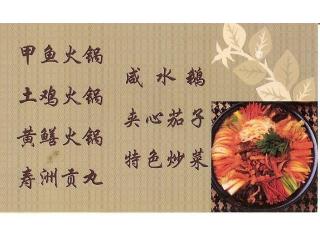 甲鱼火锅
土鸡火锅
黄鳝火锅
寿洲贡丸
咸水鹅
夹心茄子
特色炒菜